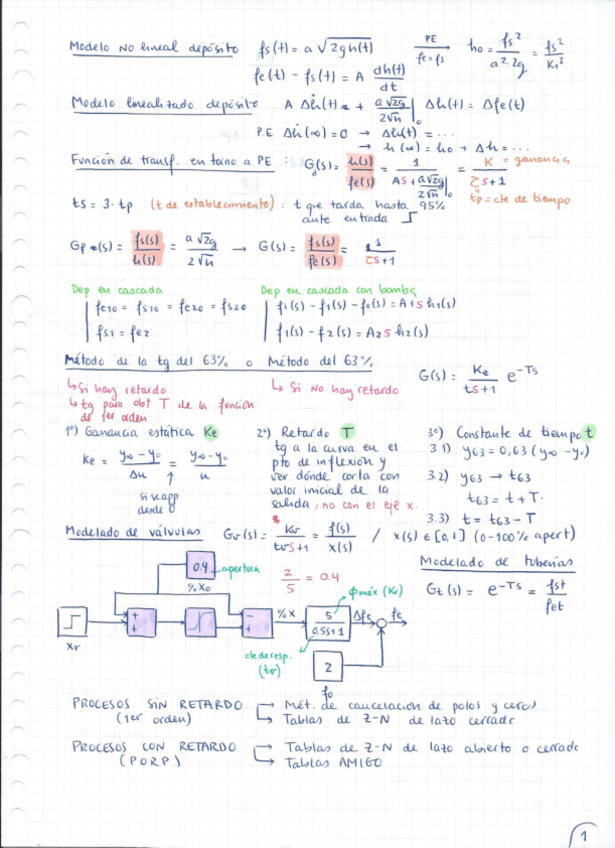 Modelo No lineal depósito fs(t) = a √2gh(t) PE fe=fs → ho = fs²/a²·2g = fs²/K1²
fe(t) - fs(t) = A dh(t)/dt
Modelo linealizado depósito A Δḣ(t) + a√2g/2√h |₀ Δh(t) = Δfe(t)
P.E Δḣ(∞) = 0 → Δh(t) = ...
→ h(∞) = ho + Δh = ...
Función de transf. en torno a PE : Gd(s) = h(s)/fe(s) = 1/(As + a√2g/2√h |₀) = K/(τs+1) K = ganancia
tp = cte de tiempo
ts = 3·tp (t de establecimiento) : t que tarda hasta 95%
ante entrada
Gp(s) = fs(s)/h(s) = a√2g/2√h → G(s) = fs(s)/fe(s) = 1/(τs+1)
Dep en cascada
fe10 = fs10 = fe20 = fs20
fs1 = fe2
Dep en cascada con bomba
f1(s) - f1(s) - fc(s) = A1s h1(s)
f1(s) - f2(s) = A2s h2(s)
Método de la tg del 63% o Método del 63%
↳ Si hay retardo
↳ tg para obt T de la función
de 1er orden
↳ Si No hay retardo
G(s) = Ke/(ts+1) e^-Ts
1º) Ganancia estática Ke
Ke = (y∞ - yo)/Δu = (y∞ - yo)/u
↑
si seapp
desde 0
2º) Retardo T
tg a la curva en el
pto de inflexión y
ver dónde corta con
valor inicial de la
salida, no con el eje x.
3º) Constante de tiempo t
3.1) y63 = 0,63 (y∞ - yo)
3.2) y63 → t63
t63 = t + T.
3.3) t = t63 - T
Modelado de válvulas Gv(s) = Kv/(tvs+1) = f(s)/x(s) / x(s) ∈ [0,1] (0-100% apert)
0.4 apertura
%Xo
2/5 = 0.4
Xr
+
+
+
-
%X
ϕmáx (Kv)
5/(0.5s+1)
Δfe
fe
cte de resp.
(tv)
2
fo
Modelado de tuberías
Gt(s) = e^-Ts = fst/fet
PROCESOS SIN RETARDO → Mét. de cancelación de polos y ceros
(1er orden) → Tablas de Z-N de lazo cerrado
PROCESOS CON RETARDO → Tablas de Z-N de lazo abierto o cerrado
(PORP) → Tablas AMIGO
1